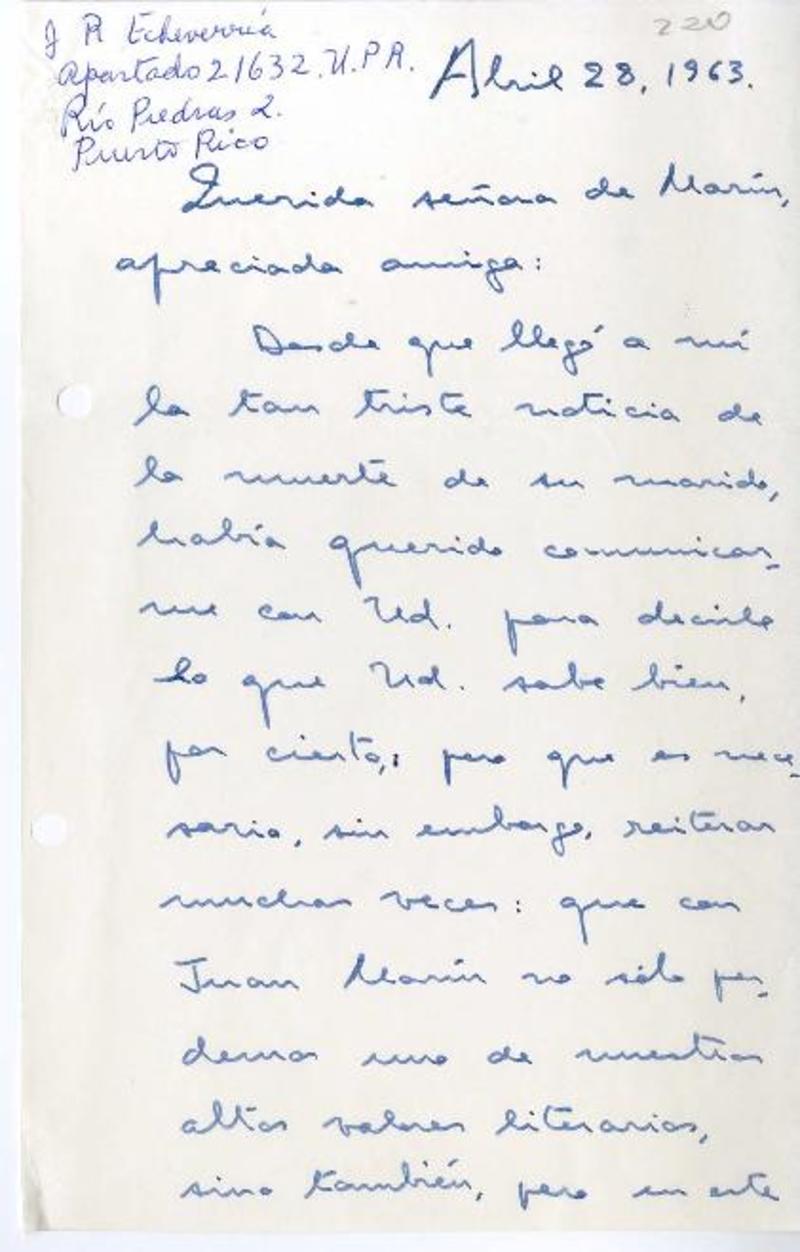 220
J R Echeverría
Apartado 21632. U.P.R.
Río Piedras 2.
Puerto Rico
Abril 28, 1963.
Querida señora de Marín,
apreciada amiga:
Desde que llegó a mí
la tan triste noticia de
la muerte de su marido,
había querido comunicar-
me con Ud. para decirle
lo que Ud. sabe bien,
por cierto,; pero que es nece-
sario, sin embargo, reiterar
muchas veces: que con
Juan Marín no sólo per-
demos uno de nuestros
altos valores literarios,
sino también, pero en este